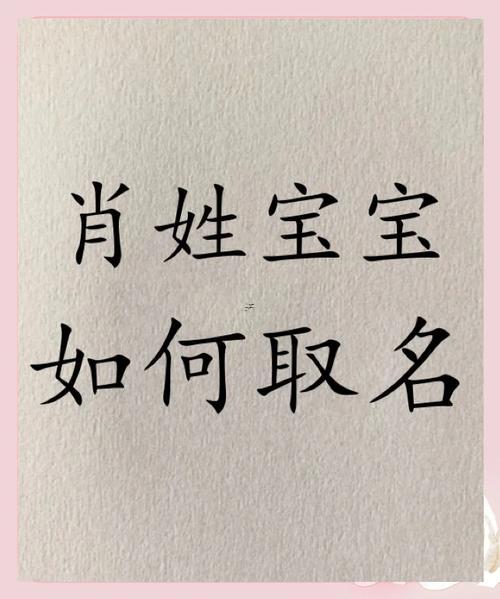 肖姓宝宝
如何取名